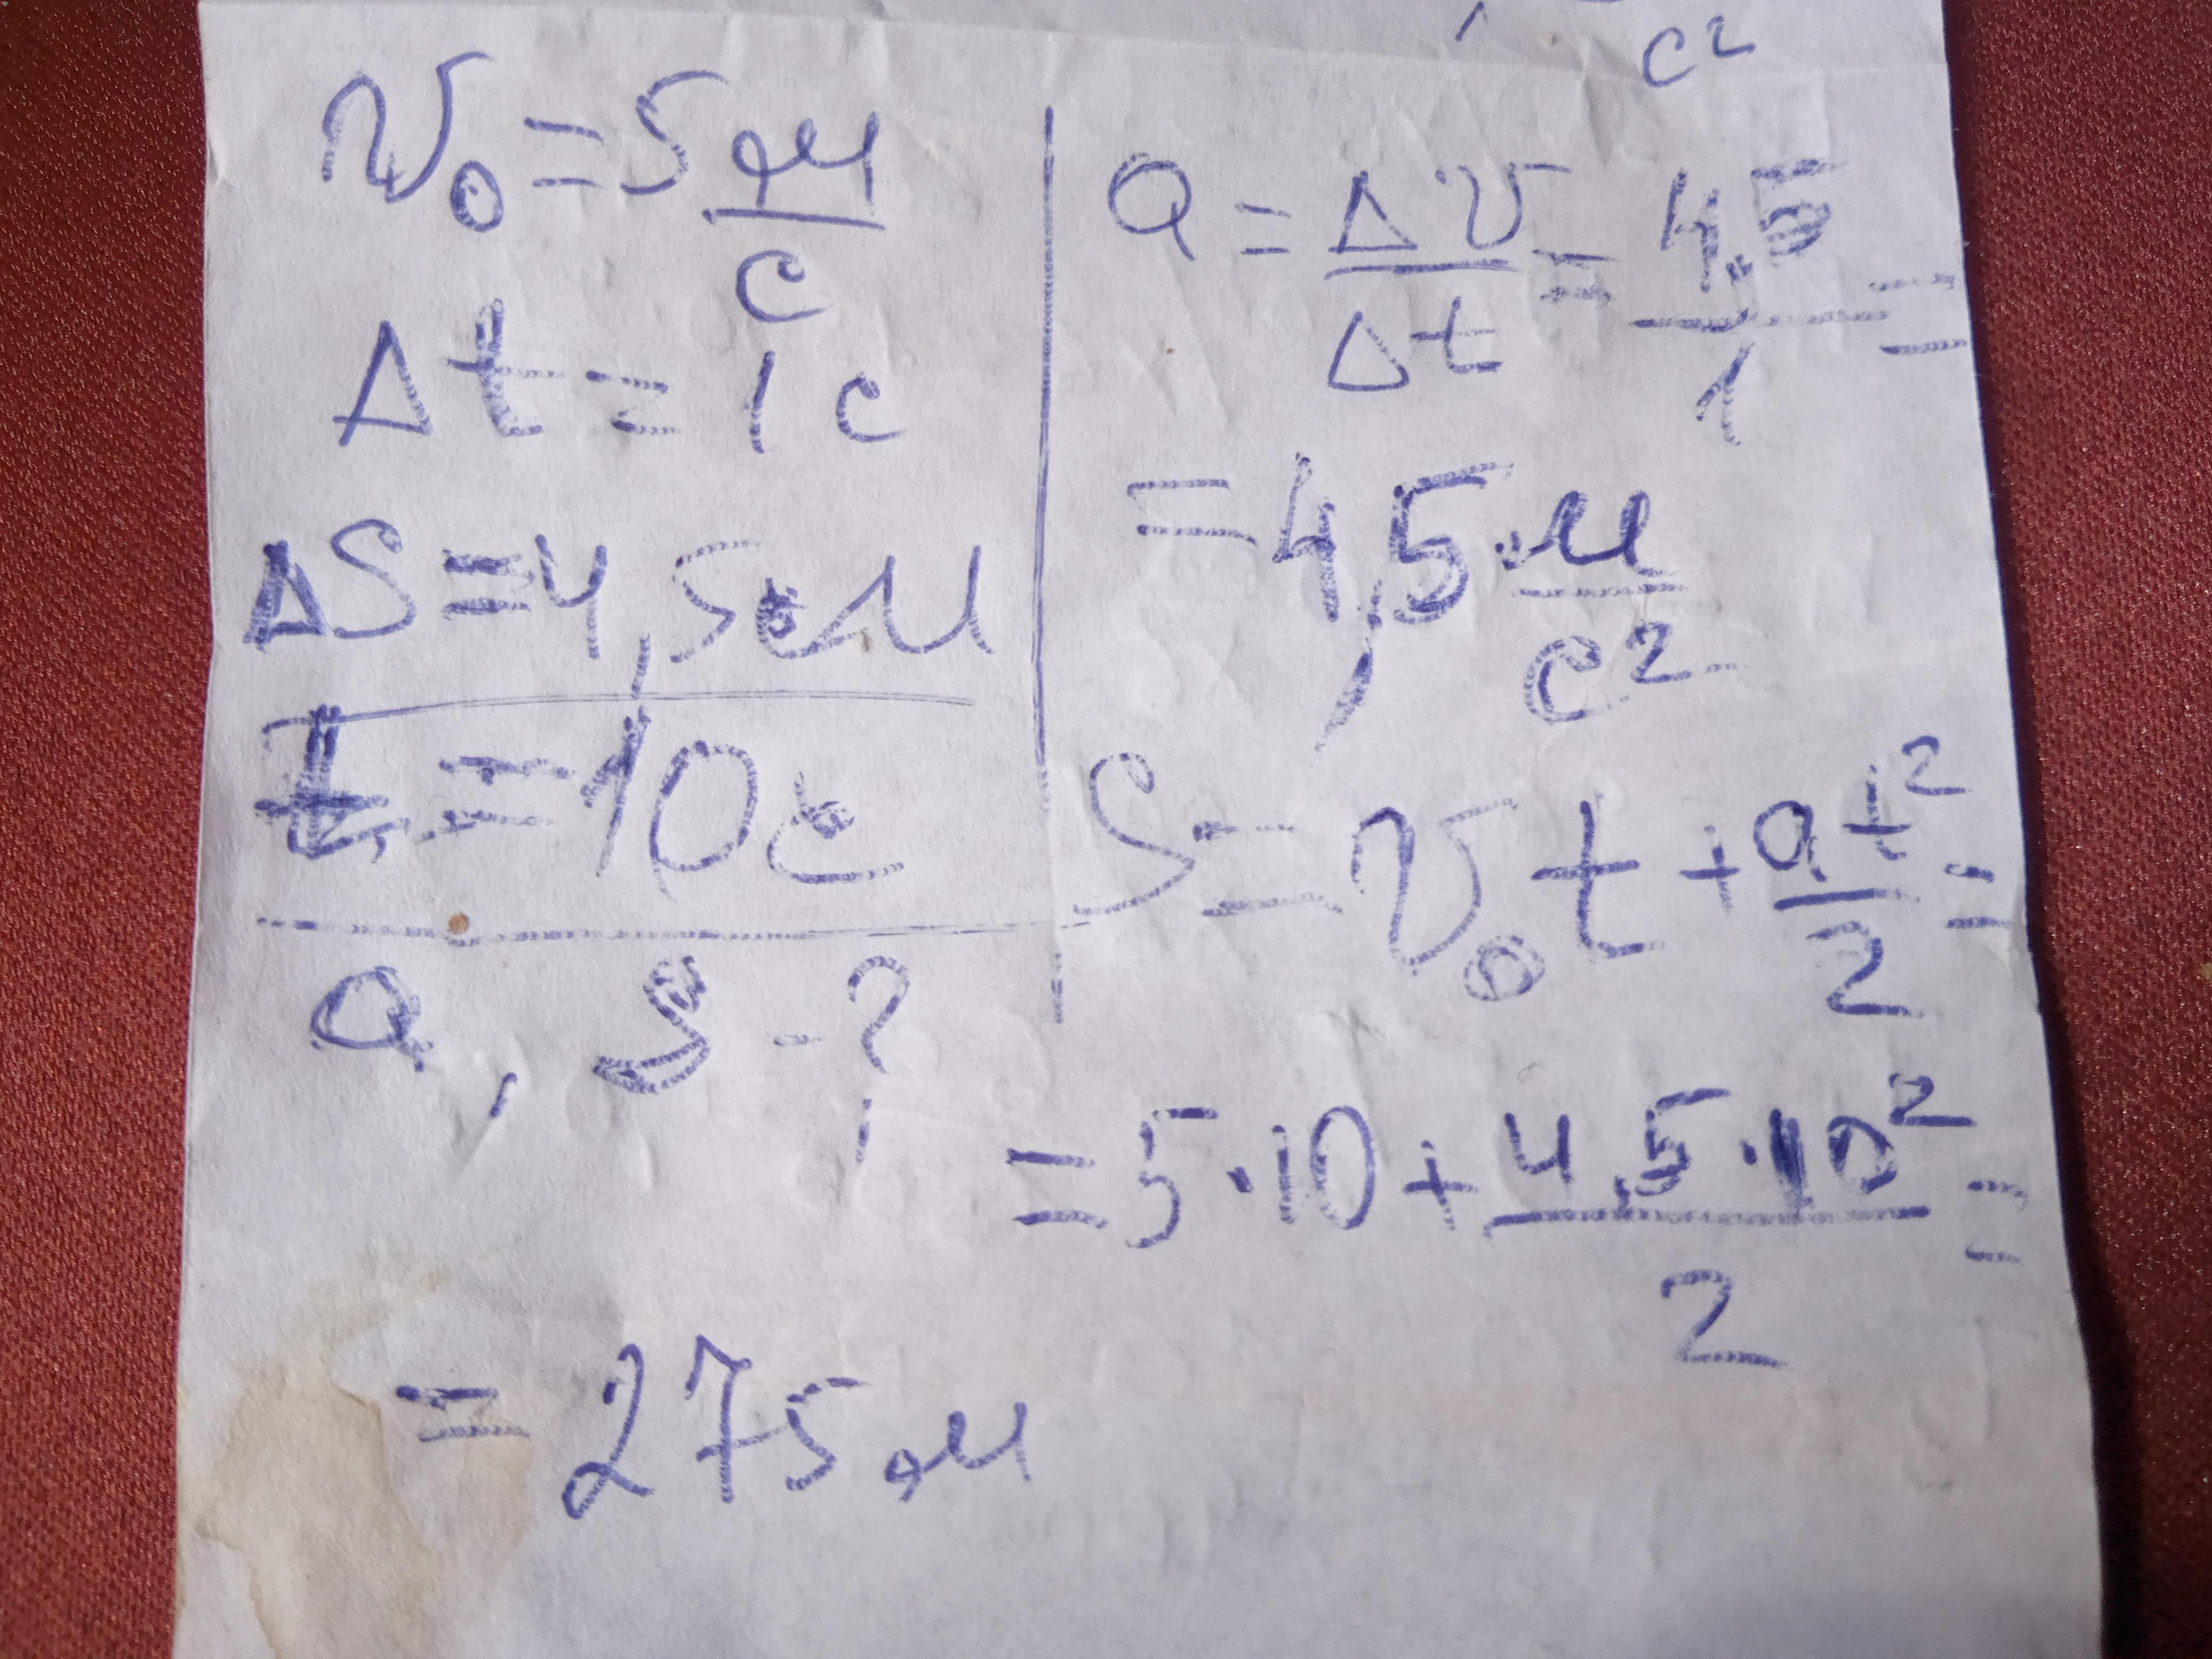 c²
v₀ = 5 м/c
Δt = 1 c
ΔS = 4,5 м
t = 10 c
a, S - ?
a = Δv/Δt = 4,5/1 =
= 4,5 м/c²
S = v₀t + at²/2 =
= 5·10 + 4,5·10²/2 =
= 275 м